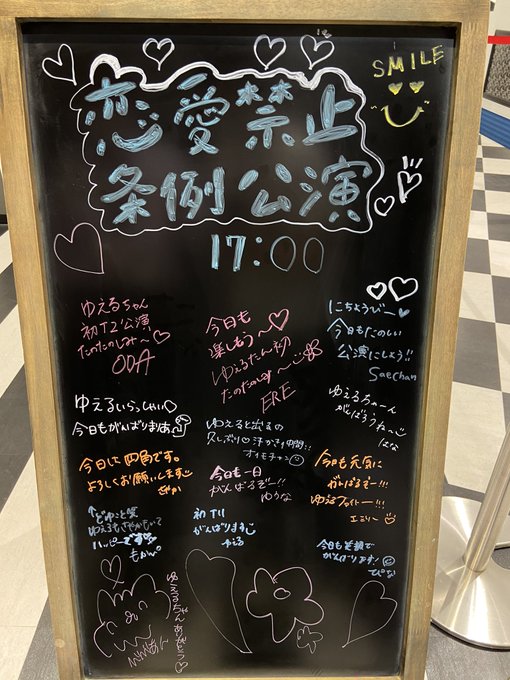 SMILE
恋愛禁止
条例公演
17:00
ゆえるちゃん
初T2公演!
たのたのしみ〜♡
ODA
今日も
楽しもう〜
ゆえるたん初
たのたのしみ
ERE
にちようびー
今日もたのしい
公演にしよう!!
Saechan
ゆえるいらっしゃい♡
今日もがんばりまりあ
ゆえると出るの
久しぶり♡汗かき仲間!!
オイモチャン
ゆえるちゃーん
がんばろうね〜
はな
今日は四角です。
よろしくお願いします
今日も一日
がんばるぞー!!
ゆうな
今日も元気に
がんばるぞー!!!
ゆえるファイトー!!!
エミリー
↑どゆこと笑
ハッピーです
初
がんばります
ゆえる
今日も笑顔で
がんばります!
ぴな
ゆえるちゃん
ありがとう♡